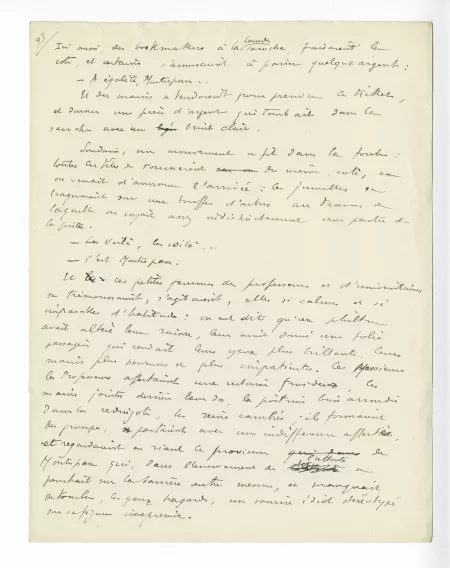 98/
Ici aussi, des bookmakers à la cravache, faisaient la
cote, et certains s'amusaient à parier quelque argent :
— A égalité, Montespan...
Et des mains se tendaient pour prendre les tickets,
et donner une pièce d'argent qui tombait dans la
sacoche avec un bruit clair.
Soudain, un mouvement se fit dans la foule :
toutes les têtes se tournèrent du même côté, car
on venait d'annoncer l'arrivée : les jumelles se
braquèrent sur une touffe d'arbres au travers de
laquelle on voyait assez indistinctement une partie de
la piste.
— Les voilà, les voilà...
— C'est Montespan.
Et ces petites femmes de professeurs et d'universitaires
se trémoussaient, s'agitaient, elles si calmes et si
impassibles d'habitude : on eut dit qu'un philtre
avait altéré leur raison, leur avait donné une folie
passagère qui rendait leurs yeux plus brillants, leurs
mains plus nerveuses et plus impatientes. Ces Messieurs
les Professeurs affectaient une certaine froideur, les
mains jointes derrière leur dos, la poitrine bien arrondie
dans la redingote, les reins cambrés : ils formaient
des groupes, parlaient avec une indifférence affectée,
et regardaient en riant le proviseur
Montespan qui, dans l'énervement de l'attente se
penchait sur la barrière outre mesure, et manquait
de tomber, les yeux hagards, un sourire idiot stéréotypé
sur sa figure inexpressive.